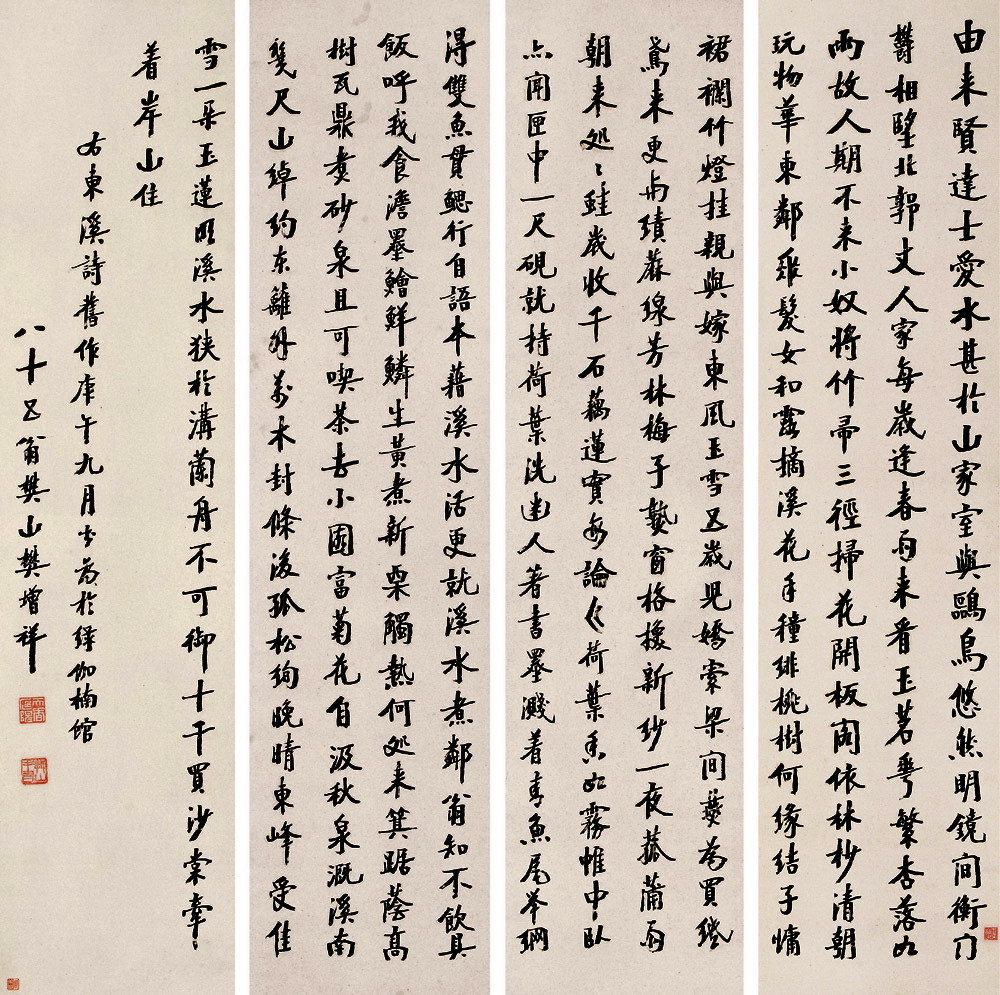 由来賢達士愛水甚於山家室與鷗鳥悠然明鏡間衡門
鬱相望北郭丈人家每歲逢春雨来看玉茗華繁杏落如
雨故人期不来小奴將竹帚三徑掃花開板閣依林杪清朝
玩物華東鄰雙髮女和露摘溪花手種緋桃樹何緣結子慵
裙襴竹燈挂親與嫁東風玉雪五歲兒嬌索梁間為買
鳶来更與績蔴線芳林梅子窗格換新紗一夜菰蒲雨
朝来処〻蛙歲收千石藕蓮實安論〻荷葉香如霧帷中臥
亦聞匣中一尺硯就持荷葉洗人著書墨濺着青魚尾举網
得雙魚貫鰓行自語本藉溪水活更就溪水煮鄰翁知不飲具
飯呼我食澹墨鱠鮮鱗生黄煮新栗觸熱何処来箕踞蔭高
樹瓦鼎煮砂泉且可喫茶去小園富菊花自汲秋泉溉溪南
幾尺山綽約東籬外萬木封條後孤松絢晚晴東峰受佳
雪一朵玉蓮明溪水狭於溝蘭舟不可御十千買沙棠牽〻
着岸山住
右東溪詩舊作庚午九月書為於繹伽楠館
八十五翁樊山樊增祥